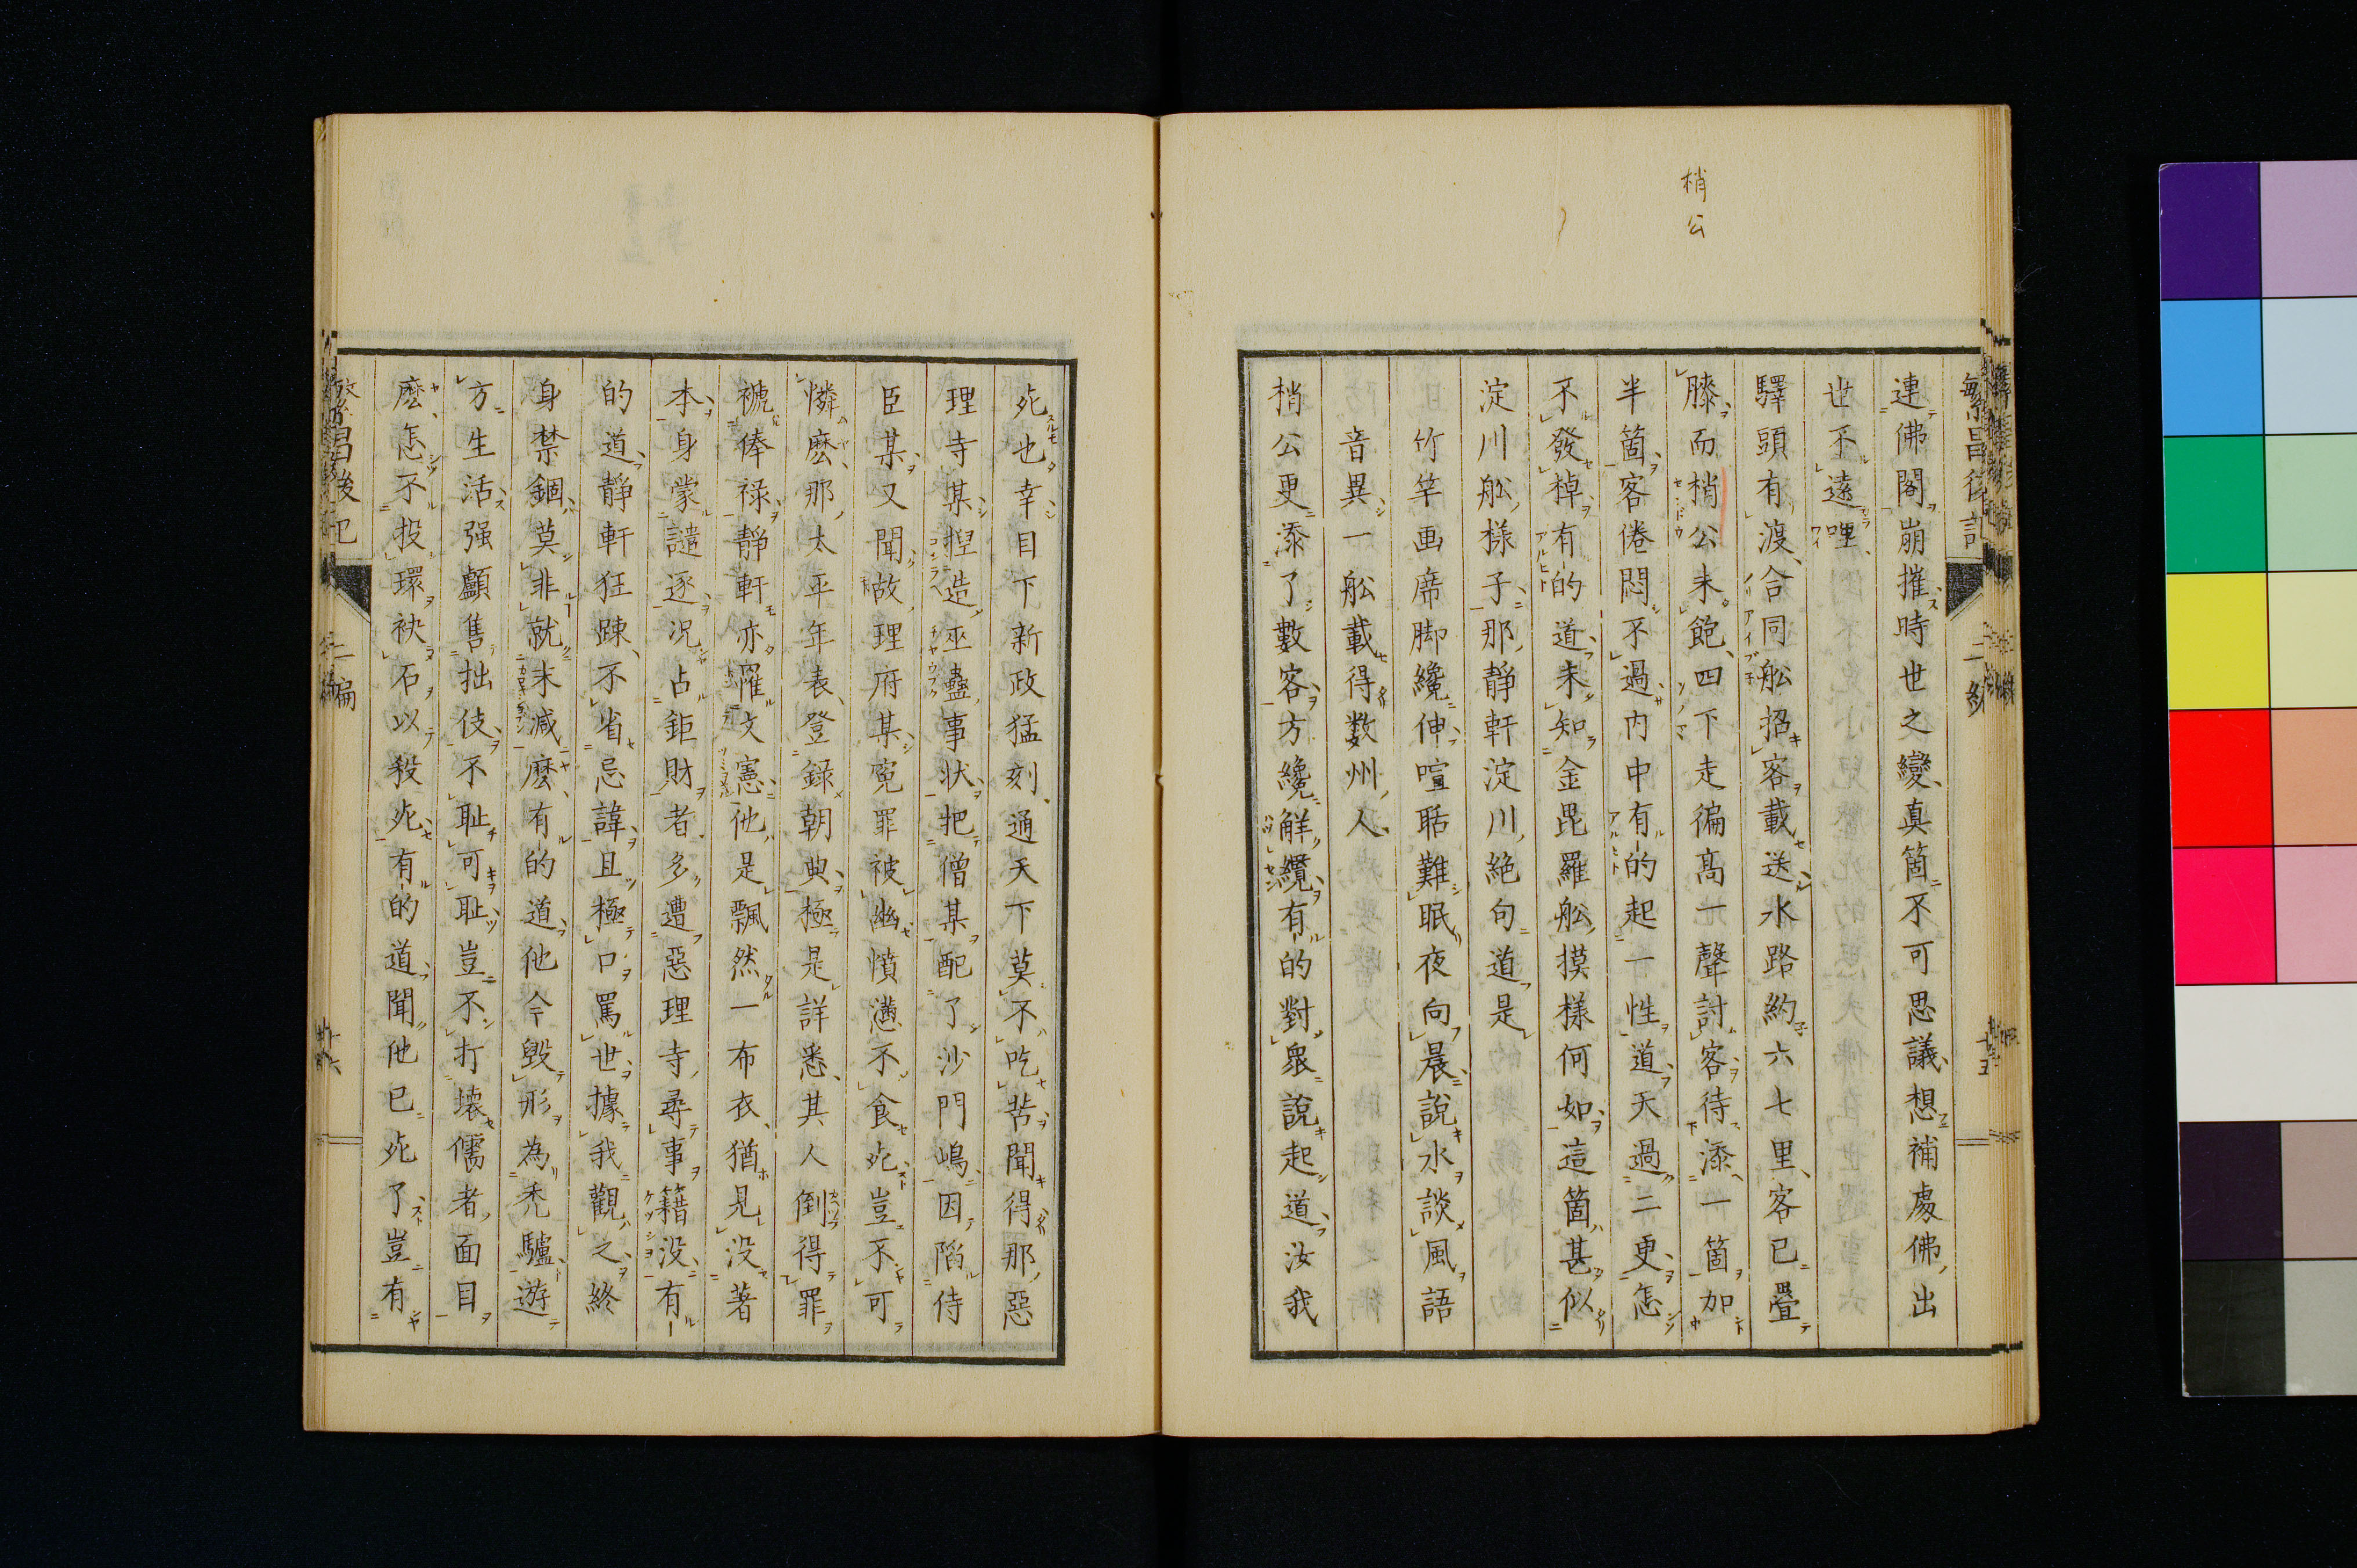 梢公
連佛閣崩摧時世之變真箇不可思議想補處佛出
世不遠哩
驛頭有渡合同舩招客載送水路約六七里客已疊
膝而梢公未飽四下走徧高一聲討客待添一箇加
半箇客倦悶不過內中有的起一性道天過二更怎
不發棹有的道未知金毘羅舩摸樣何如這箇甚似
淀川舩樣子那靜軒淀川絶句道是
竹竿画席脚纔伸喧聒難眠夜向晨說水談風語
音異一舩載得数州人
梢公更添了數客方纔解纜有的對衆說起道汝我
死也幸目下新政猛刻通天下莫不吃苦聞得那惡
理寺某揑造巫蠱事状把僧某配了沙門嶋因䧟侍
臣某又聞故理府某寃罪被幽憤懣不食死豈不可
憐麽那太平年表登錄朝典極是詳悉其人倒得罪
褫俸禄靜軒亦罹文憲他是飄然一布衣猶見没著
本身蒙譴逐况占鉅財者多遭惡理寺尋事籍没有
的道靜軒狂踈不省忌諱且極口罵世據我觀之終
身禁錮莫非就末减麽有的道他今毀形為禿驢遊
方生活强顱售拙伎不耻可耻豈不打壊儒者面目
麽怎不投環袂石以殺死有的道聞他已死了豈有